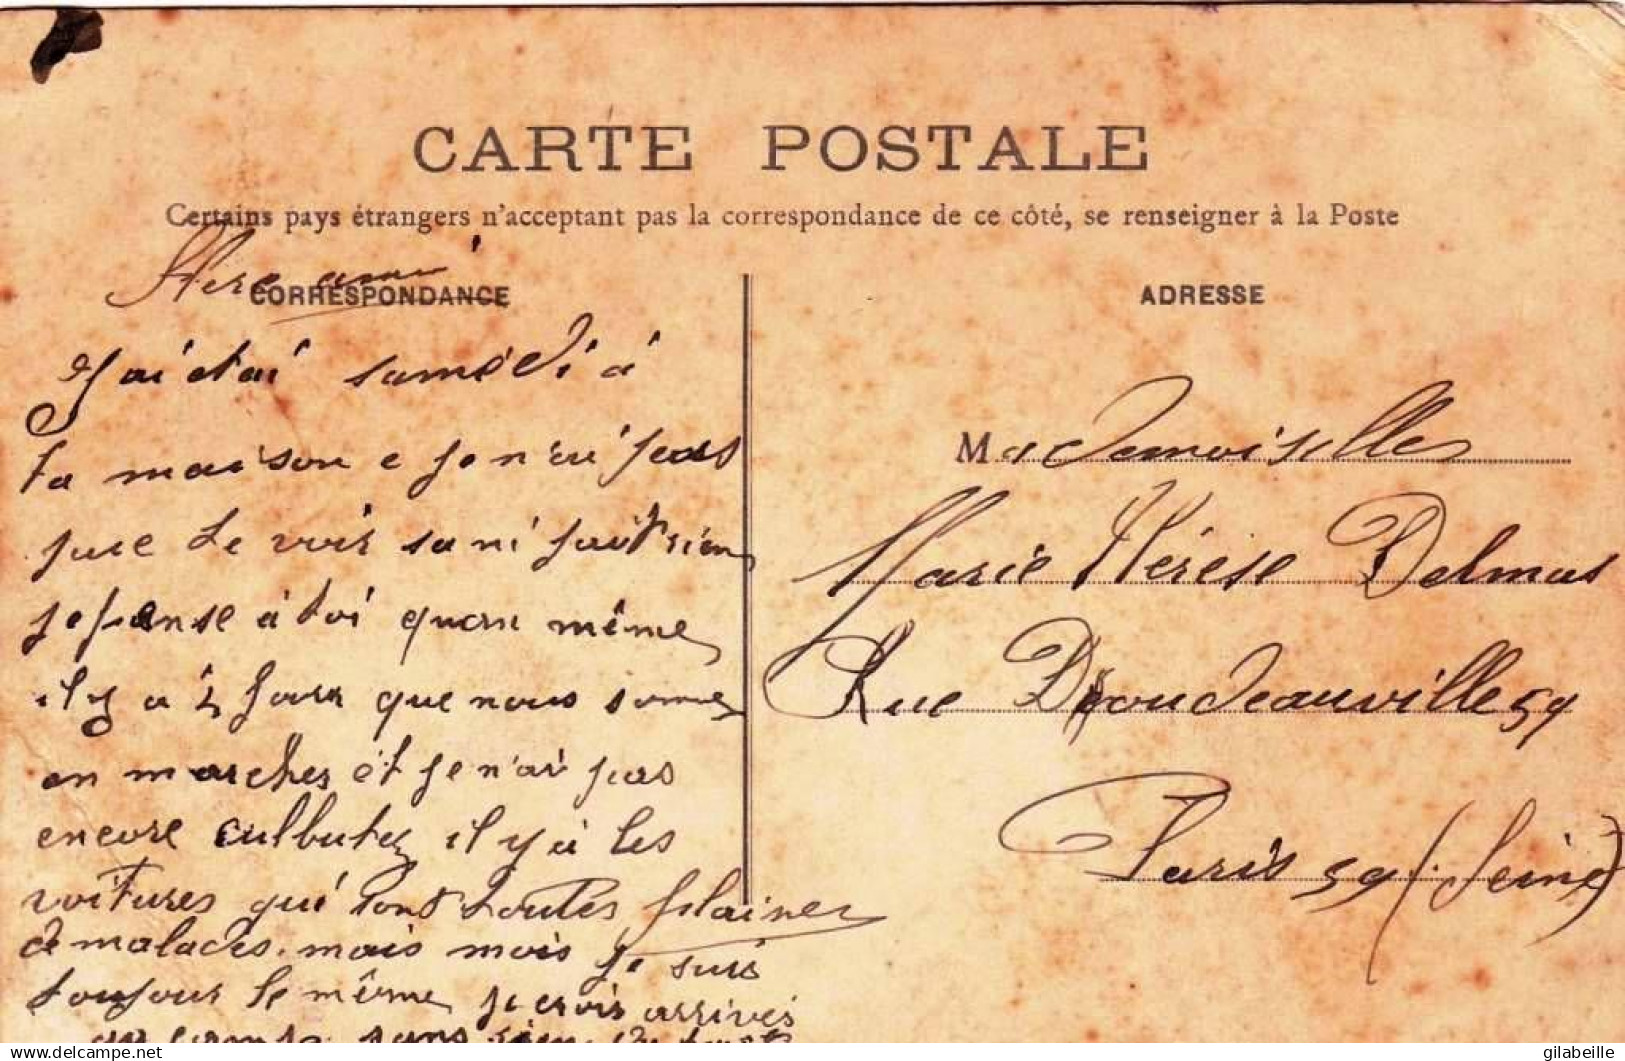 CARTE POSTALE
Certains pays étrangers n'acceptant pas la correspondance de ce côté, se renseigner à la Poste
CORRESPONDANCE
ADRESSE
J'ai étai samedi á
ta maison e je n'ai pas
pure te voir sa ni fait rien
je panse á toi quan même
il y a 2 jours que nous somme
en marches et je n'ai pas
encore culbutez il y á les
voitures qui sont toutes plaines
de malades. mais mois je suis
toujour le même je crois arrivés
au sans rien
Mademoiselle
Marie Thérèse Delmas
Rue Doudeauville 59
Paris 59 (Seine)
gilabeille
delcampe.net